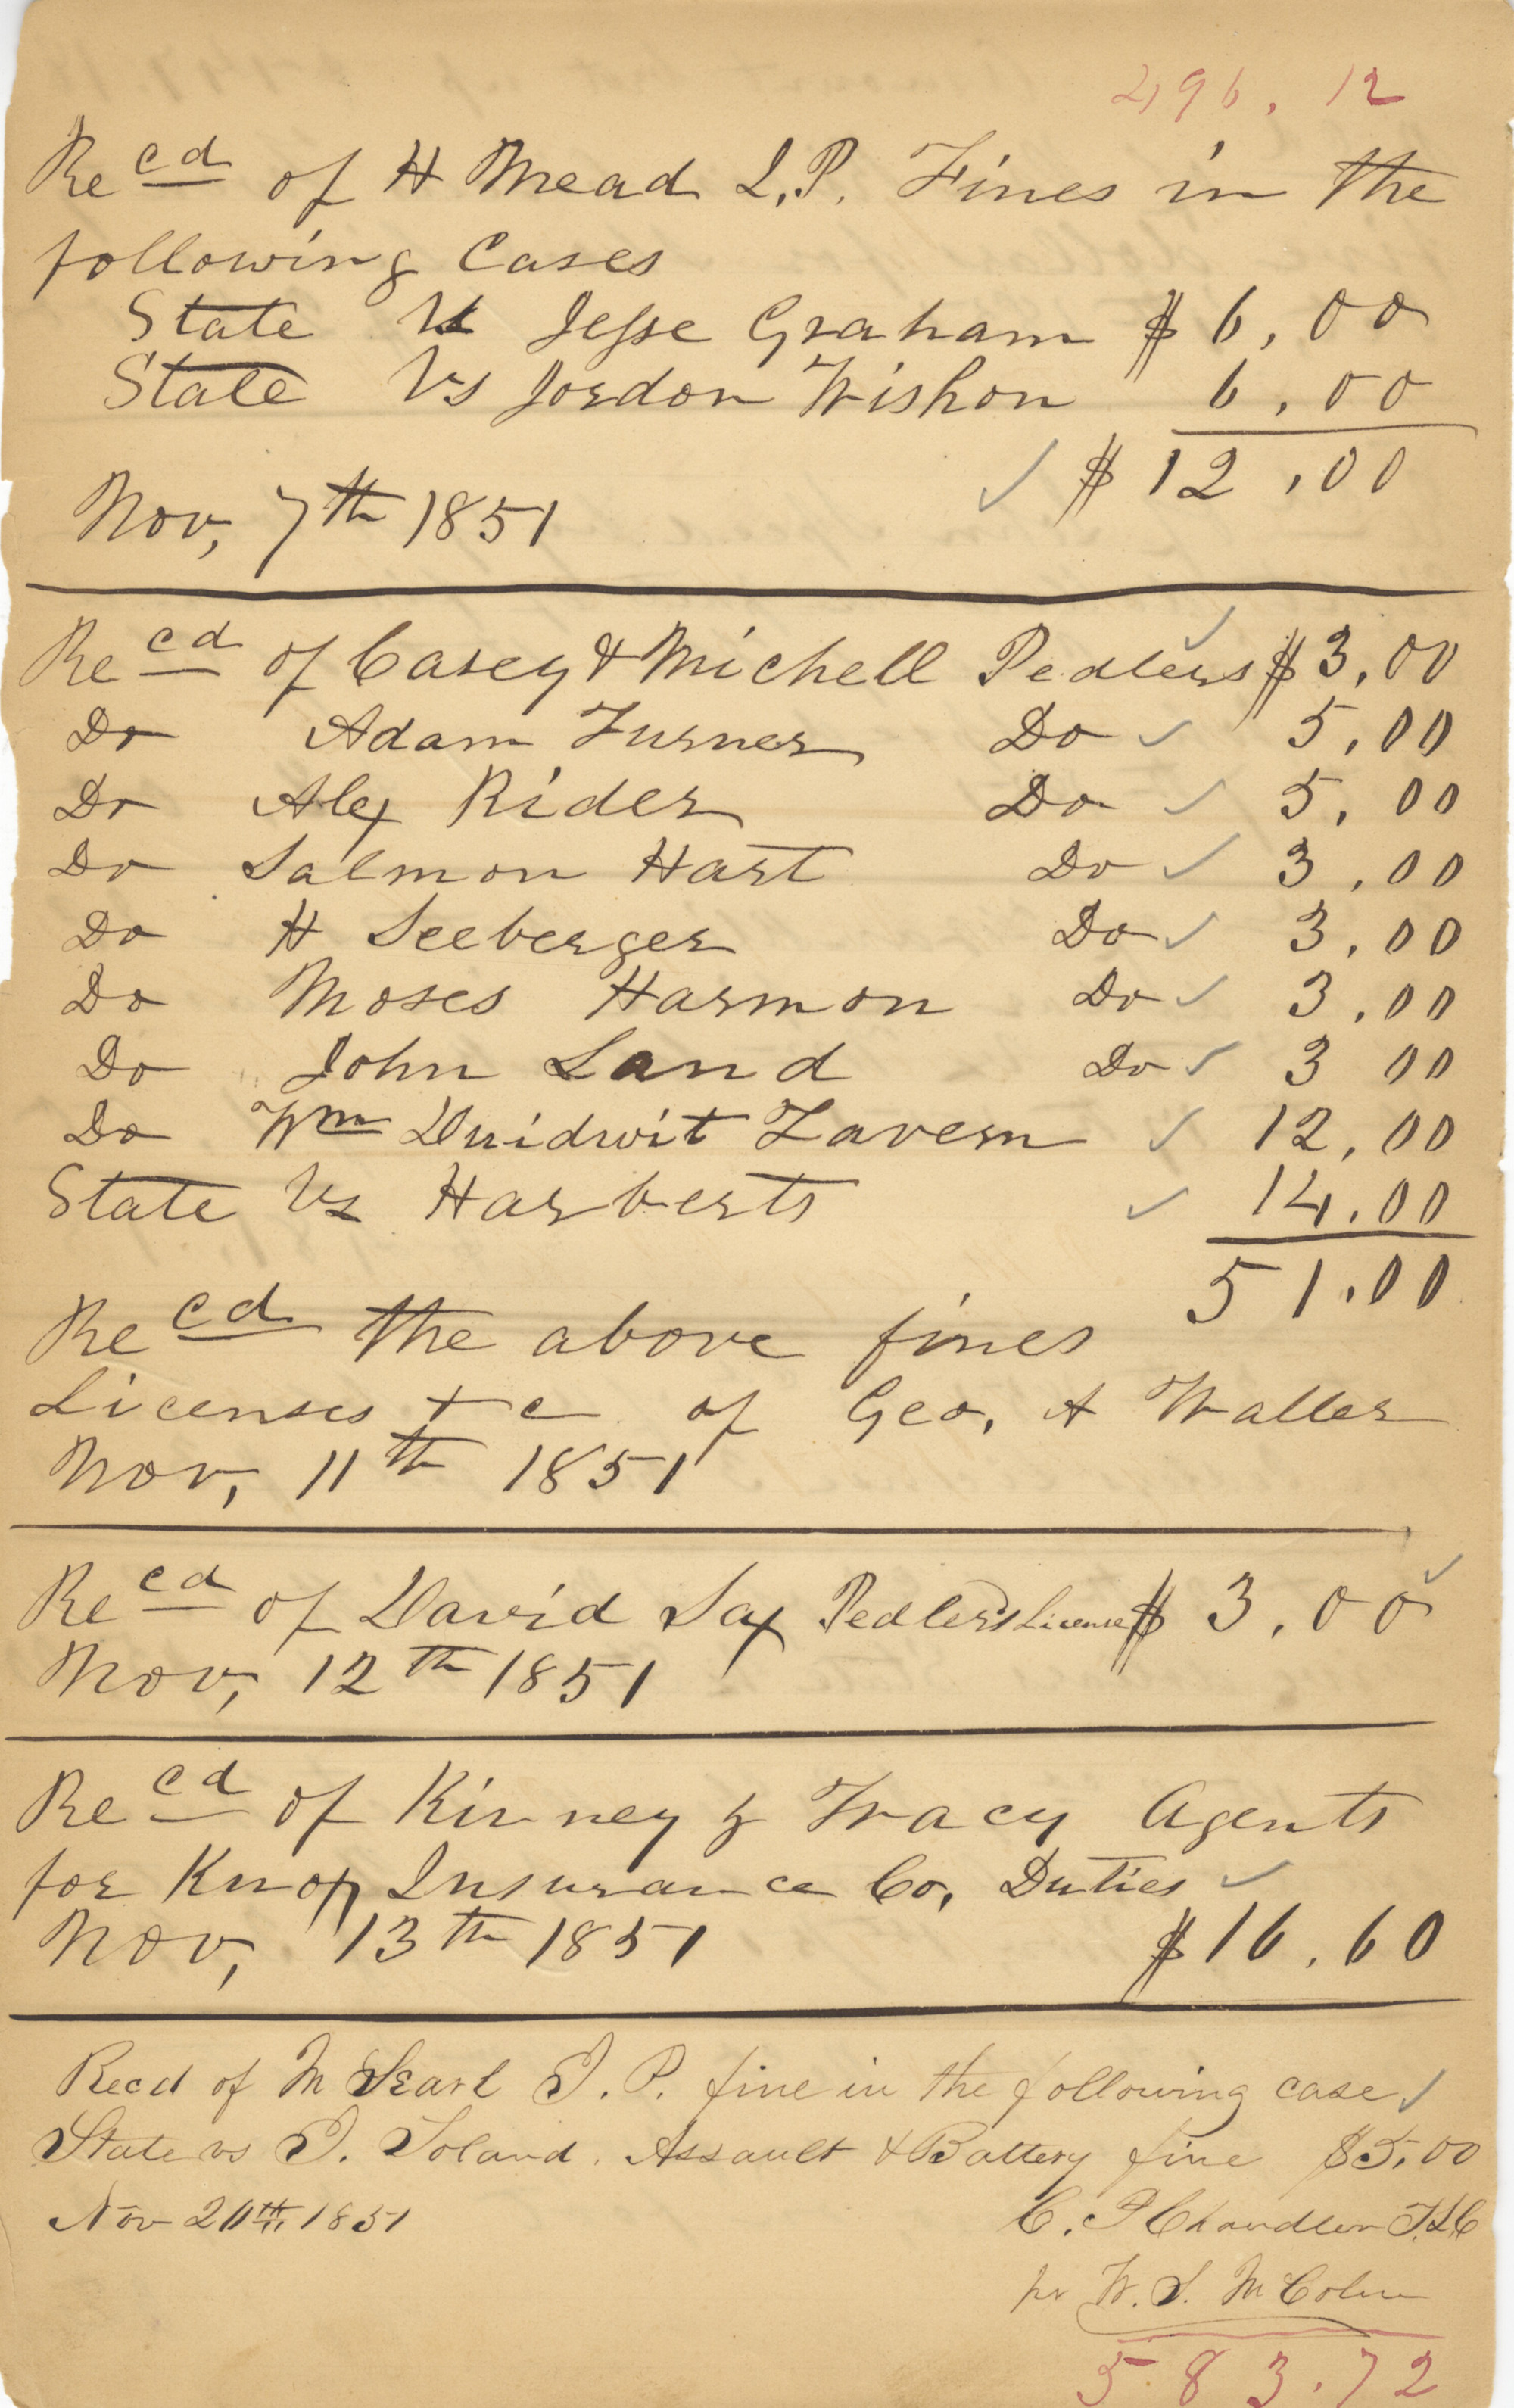 496.12
Recd of H Mead J.P. Fines in the
following Cases
State Vs Jesse Graham $6.00
State Vs Jordon Wishon 6.00
✓ $12.00
Nov, 7th 1851
Recd of Casey & Michell Pedlers $3.00
Do Adam Turner Do ✓ 5.00
Do Alex Rider Do ✓ 5.00
Do Salmon Hart Do ✓ 3.00
Do H Seeberger Do ✓ 3.00
Do Moses Harmon Do ✓ 3.00
Do John Sand Do ✓ 3 00
Do Wm Druidwit Tavern ✓ 12.00
State Vs Harberts ✓ 14.00
51.00
Recd the above fines
Licenses & c of Geo, A Waller
Nov, 11th 1851
Recd of David Sax Pedlers License $3.00 ✓
Nov, 12th 1851
Recd of Kinney & Tracy Agents
for Knox Insurance Co, Duties ✓
Nov, 13th 1851 $16.60
Recd of M Searl J.P. fine in the following case ✓
State vs J. Toland. Assault & Battery fine $5.00
Nov 20th 1851 C. P Chandler T.L.C
pr W. S. McColm
583.72